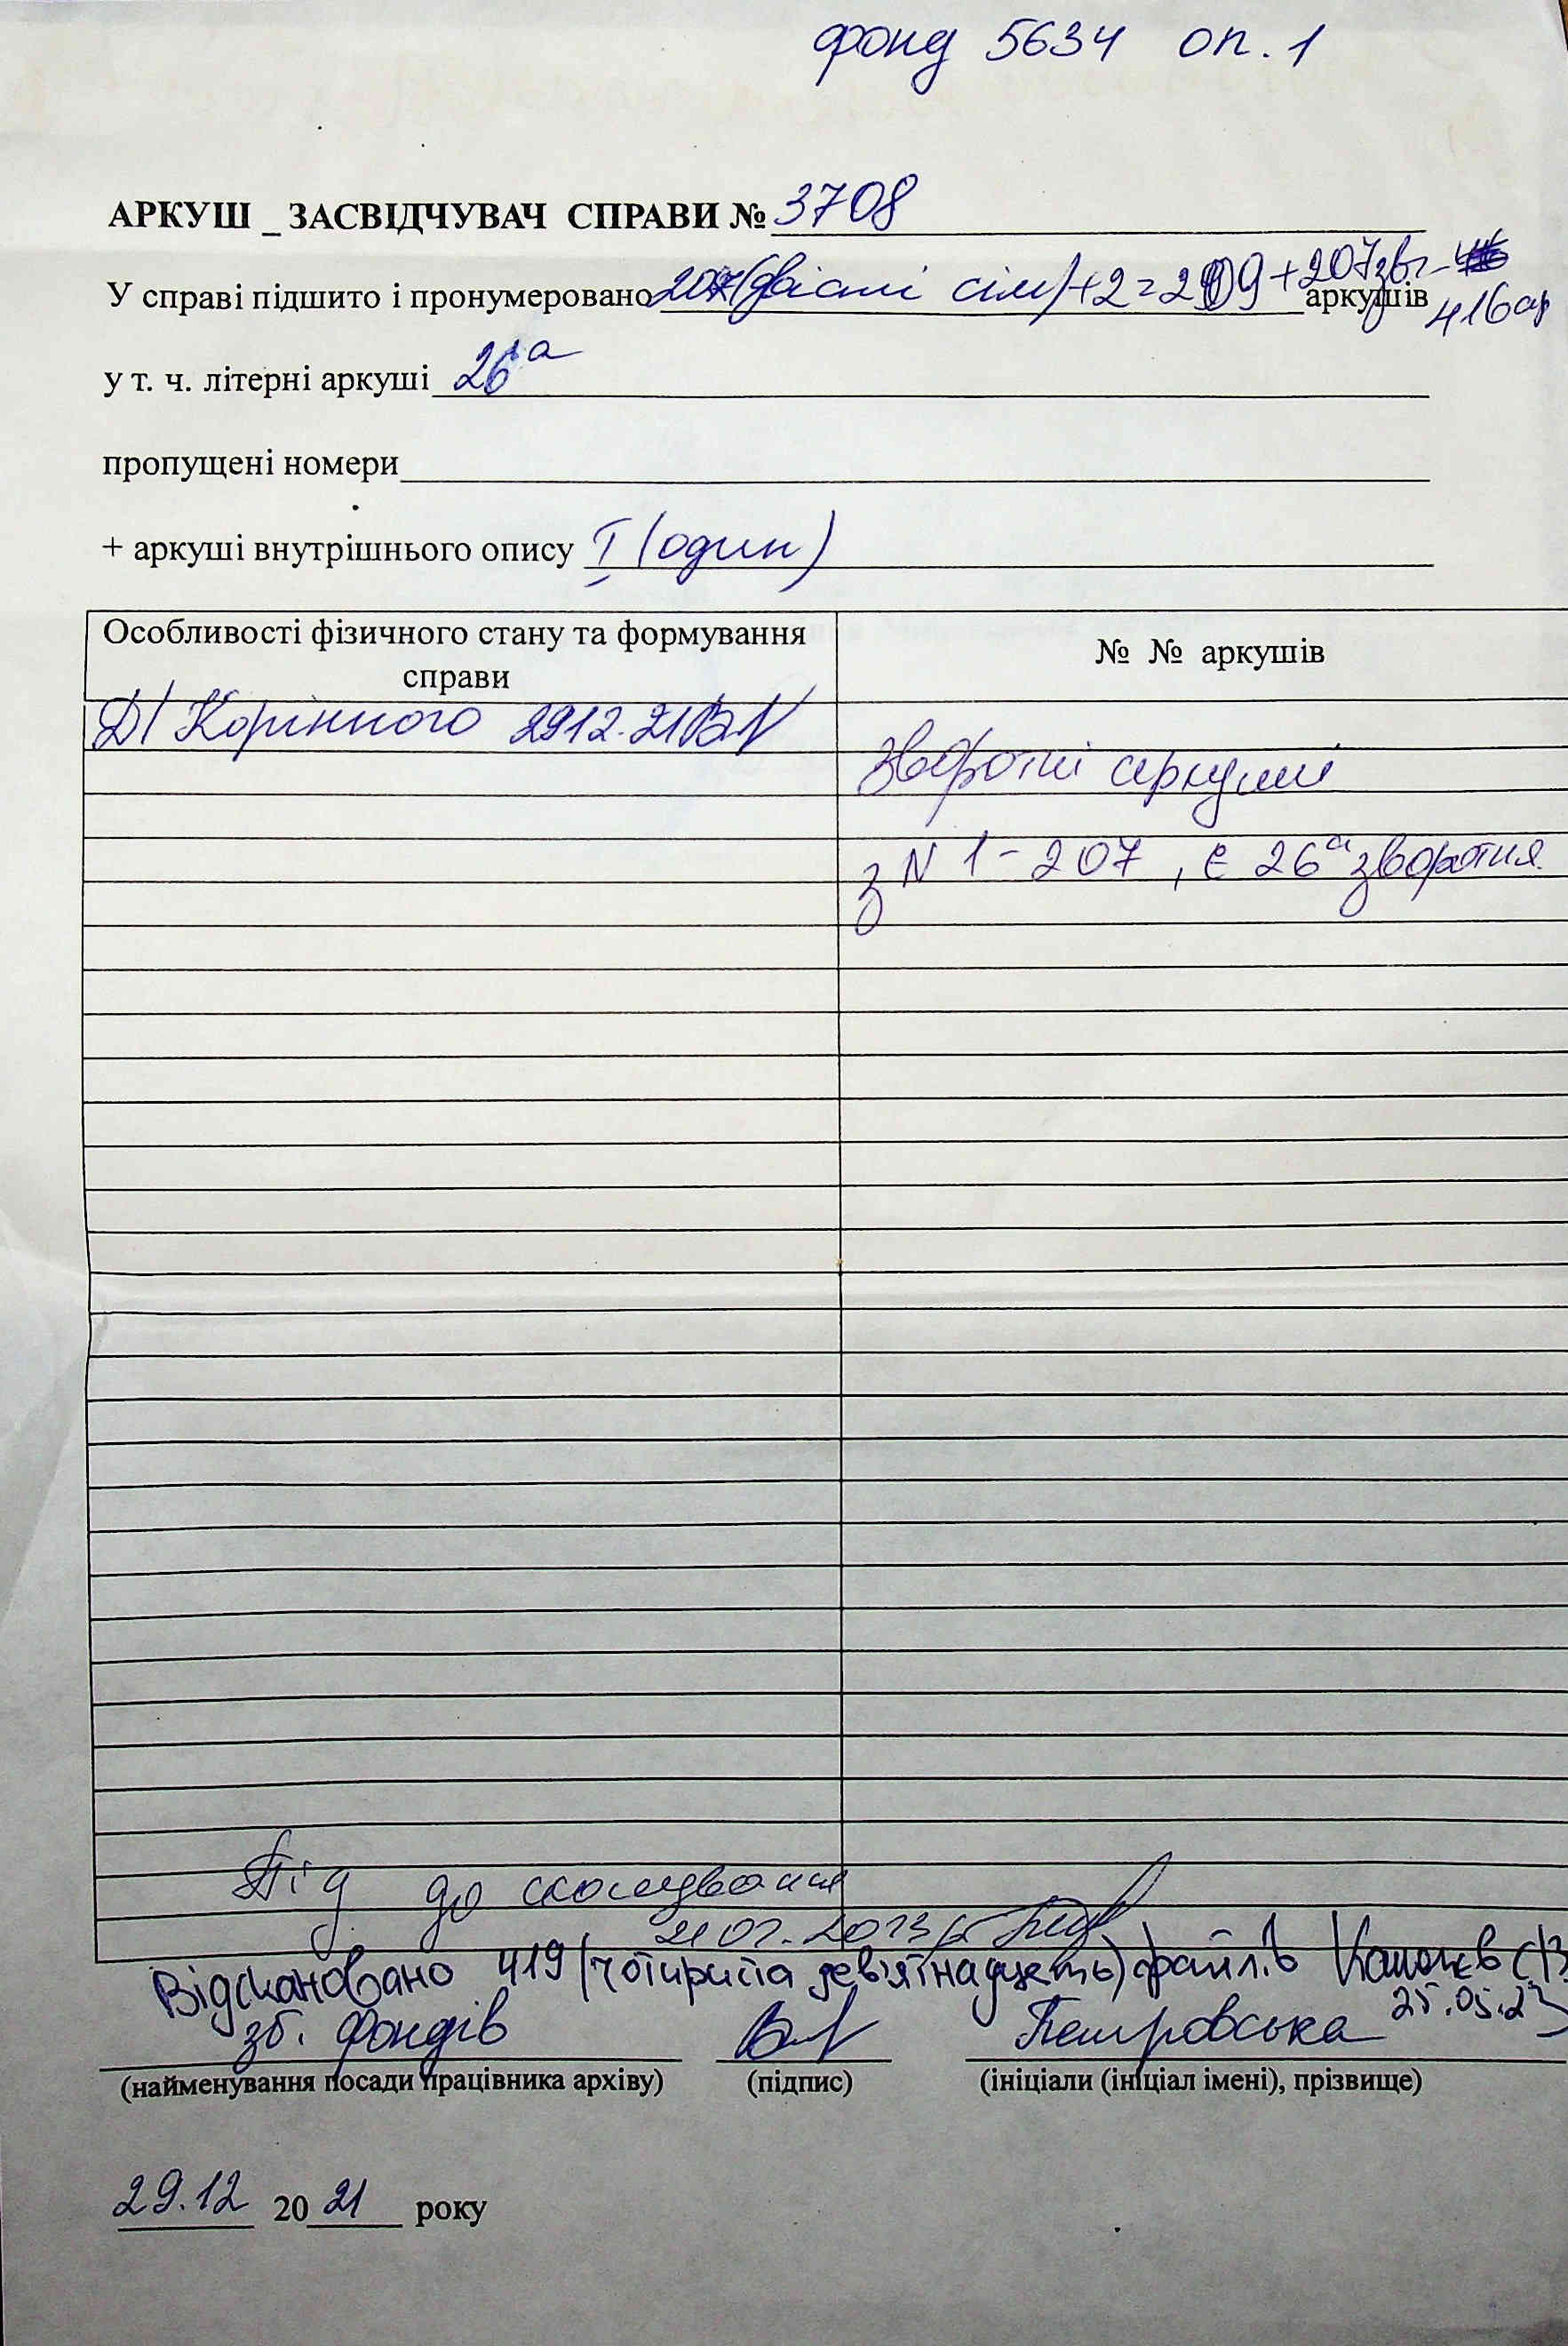 фонд 5634 оп. 1
АРКУШ _ ЗАСВІДЧУВАЧ СПРАВИ № 3708
У справі підшито і пронумеровано 207 (двісті сім) + 2 = 209 + 207 зв. - аркушів
416 ар
у т. ч. літерні аркуші 26а
пропущені номери
+ аркуші внутрішнього опису I (один)
Особливості фізичного стану та формування справи
№ № аркушів
Корінного 2912.21
Зворотні аркуші
з N 1 - 207, є 26а зворотня
до сканування
2023
Відскановано 419 (чотириста дев'ятнадцять) файлів
25.05.23
зб. фондів Петровська
(найменування посади працівника архіву) (підпис) (ініціали (ініціал імені), прізвище)
29.12 2021 року